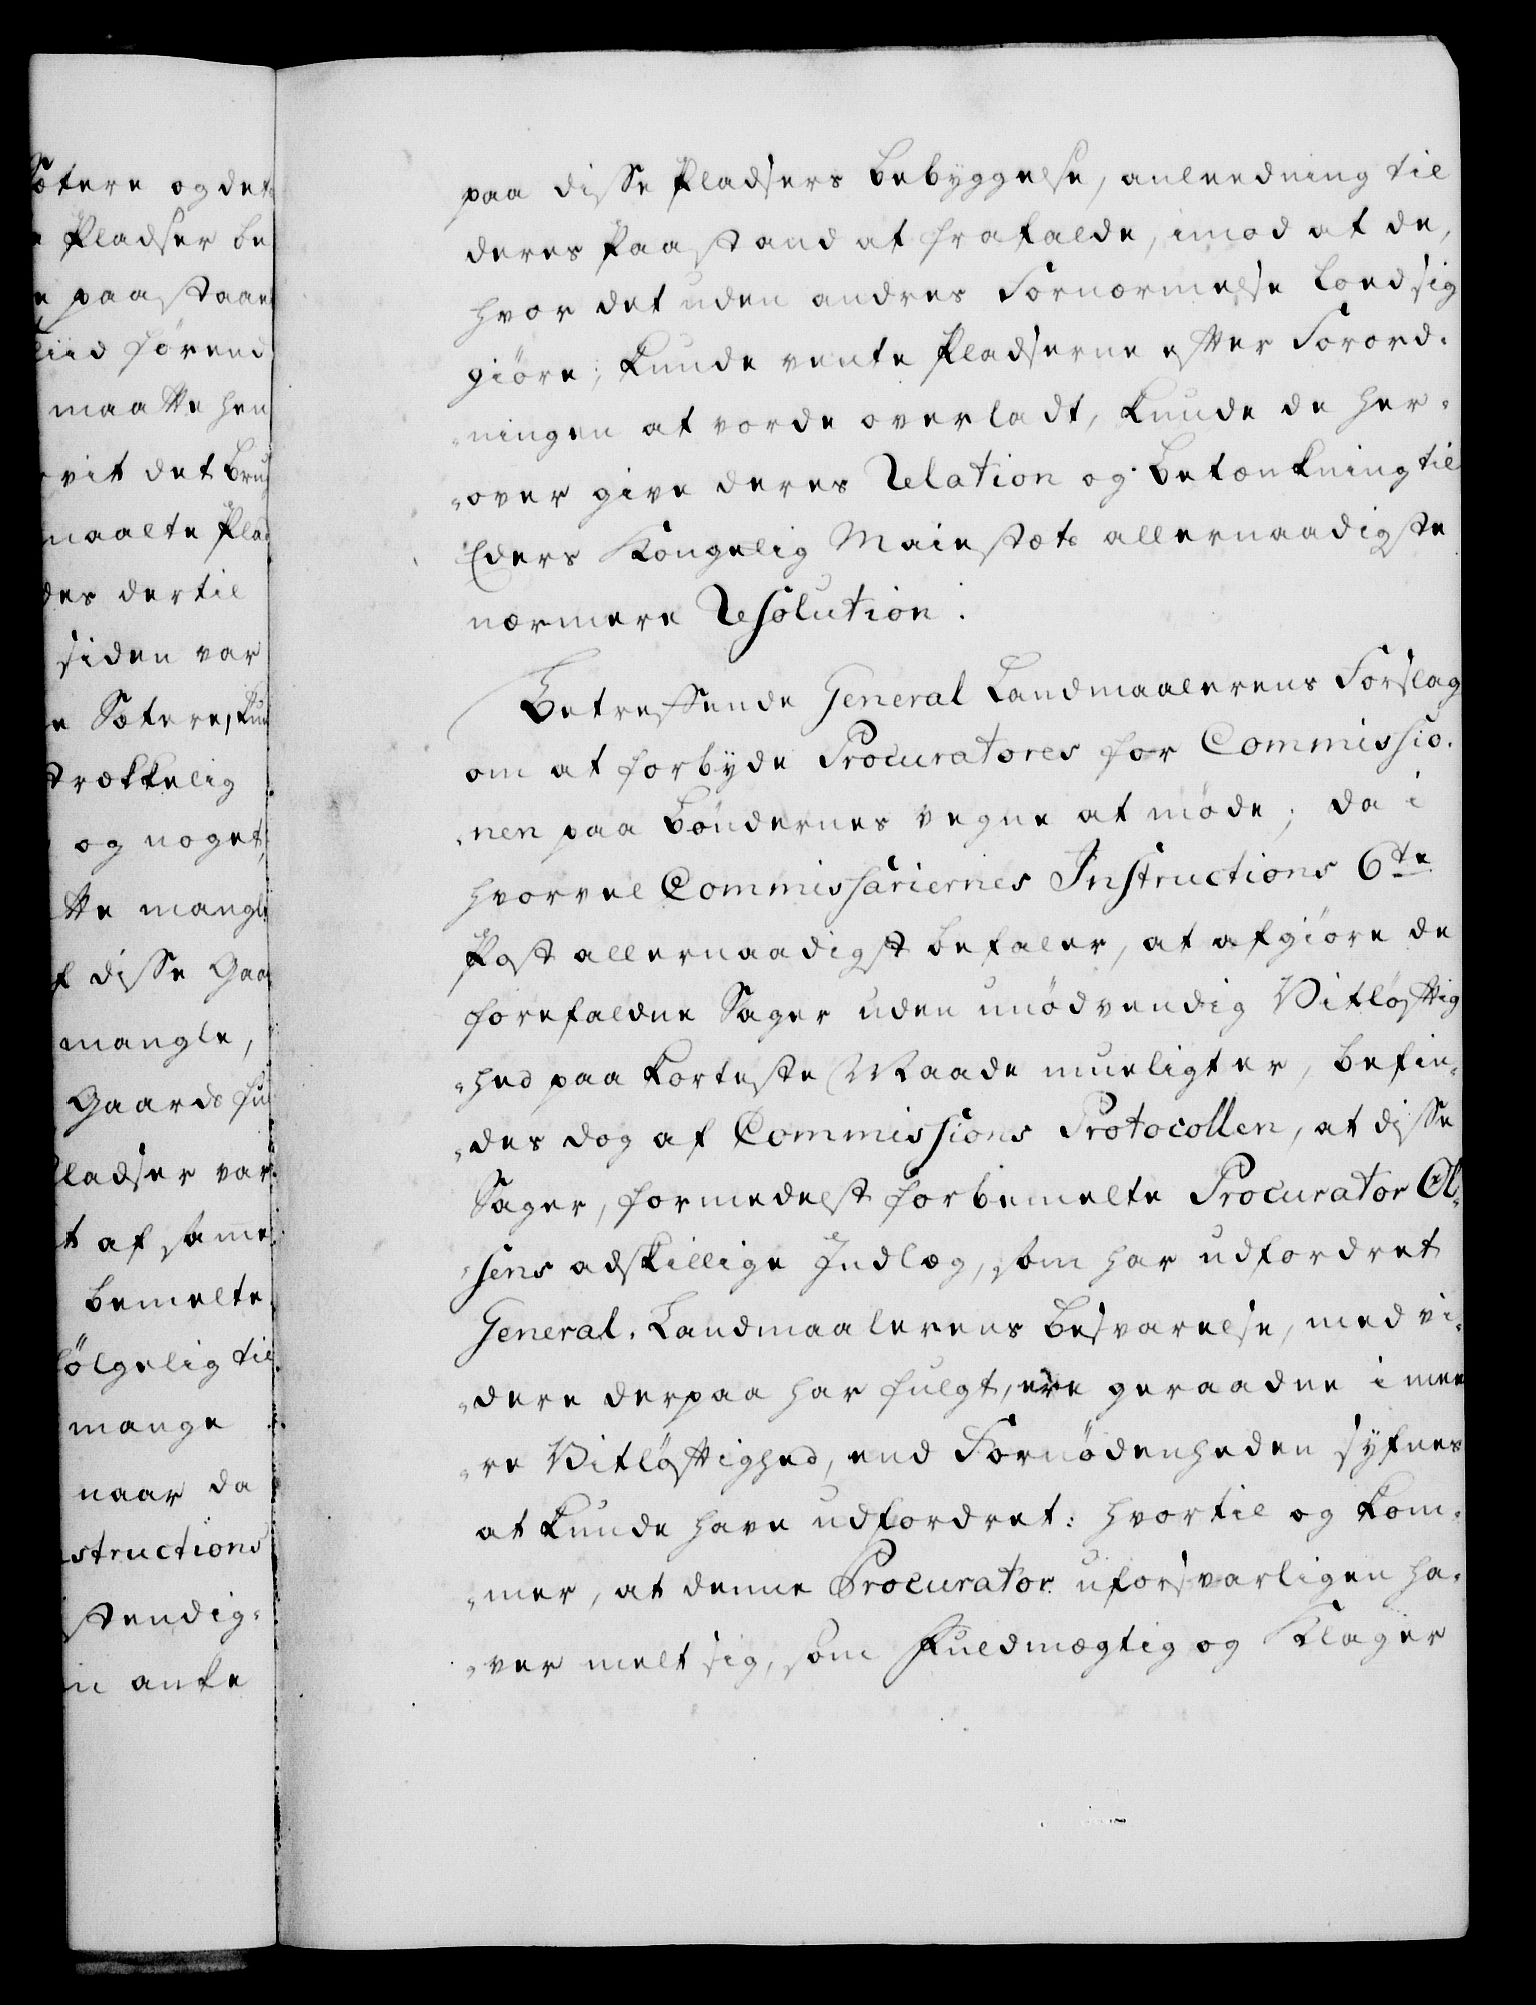 Sætere og det
Pladser be
paastaae
tiid hørend
maatte hen
vit det brug
maalte Plad
des dertil
siden var
Sætere, kun
trækkelig
og noget
tte mangle
af disse Gaa
mangle,
Gaards fu
Pladser var
t af samme
bemelte
følgelig til
mange
naar da
structions
stendig-
anke
paa disse Pladsers bebyggelse, anleedning til
deres Paastand at frafalde, imod at de,
hvor det uden andres Fornærmelse loed sig
giøre; kunde vente Pladserne efter Forord-
-ningen at vorde overladt, kunde de her-
-over give deres Relation og betænkning til
Eders Kongelig Maiestæts allernaadigste
nærmere Resolution.
Betreffende General Landmaalerens Forslag
om at forbyde Procuratores for Commissio-
-nen paa bøndernes vegne at møde; da i
hvorvel Commissariernes Instructions 6te
Post allernaadigst befaler, at afgiøre de
forefaldne Sager uden unødvendig Vitløftig
-hed paa korteste Maade mueligt er, befin-
-des dog af Commissions Protocollen, at disse
Sager, formedelst forbemelte Procurator Ol-
-sens adskillige Indlæg, som har udfordret
General-Landmaalerens besvarelse, med vi-
-dere derpaa har fulgt, ere geraadne i mee
-re Vitløftighed, end Fornødenheden syfnes
at kunde have udfordret: hvortil og kom-
-mer, at denne Procurator uforsvarligen ha-
-ver melt sig, som Fuldmægtig og Klager